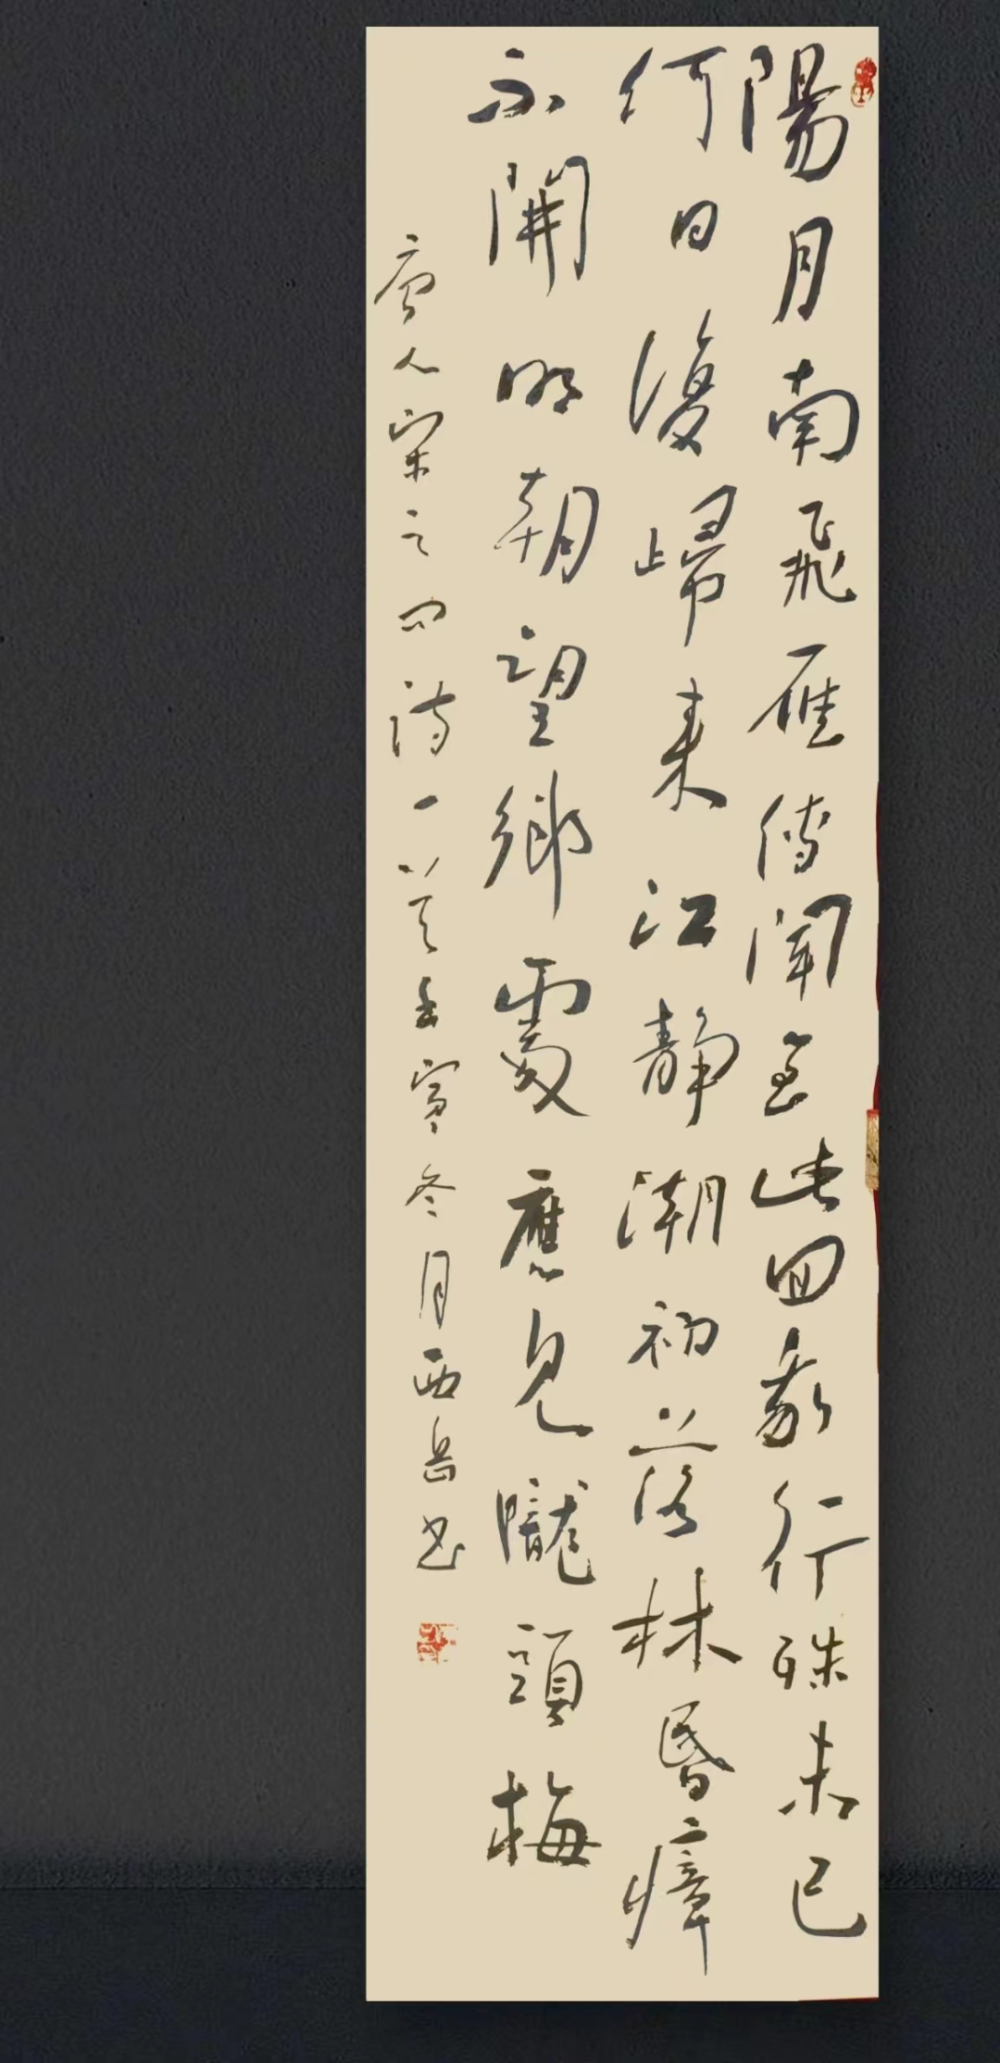 陽月南飛雁傳聞至此回我行殊未已
何日復歸来江静潮初落林昏瘴
不開明朝望鄉處應見隴頭梅
唐人宋之问詩一首壬寅冬月西岳书